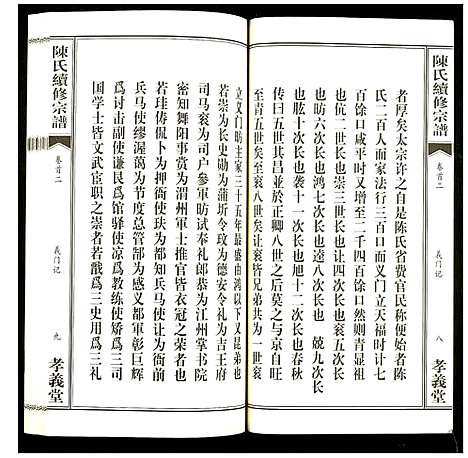 陳氏續修宗譜
卷首二
義门记
八
孝義堂
者厚矣太宗许之自是陈氏省费官民称便始者陈
氏二百人而家法行三百口而义门立天福时计七
百馀口咸平时又增至二千四百馀口然则青世长
也伉二世长也崇三世长也让四次长也衮五次长
也昉六次长也鸿七次长也逵八次长也 兢九次长
也肱十次长也袭十一次长也旭十二次长也春秋
也五世其昌並於正卿八世之后莫之与京自旺
至青世五世矣至衮八世矣让衮皆兄弟共为一世
立义门昉主家三十五年最盛由鸿以下又昆弟也
若崇为长史勋为蒲圻令玫为德安令礼为吉王府
司马衮为司户参军昉试奉礼郎恭为江州掌书院
密知舞阳事赏为渭州军士推官皆衣冠之荣者也
至侃二卜为押衙使玞为都知兵马使让为衙前
兵马使缪渥蔼为节度总管部为义军都彰巨辉
为讨击副使谦艮为馆驿使凉为教练使矫为三司
国学士皆文武宦职之崇者若戬为三史用为三礼
陳氏續修宗譜
卷首二
義门记
九
孝義堂